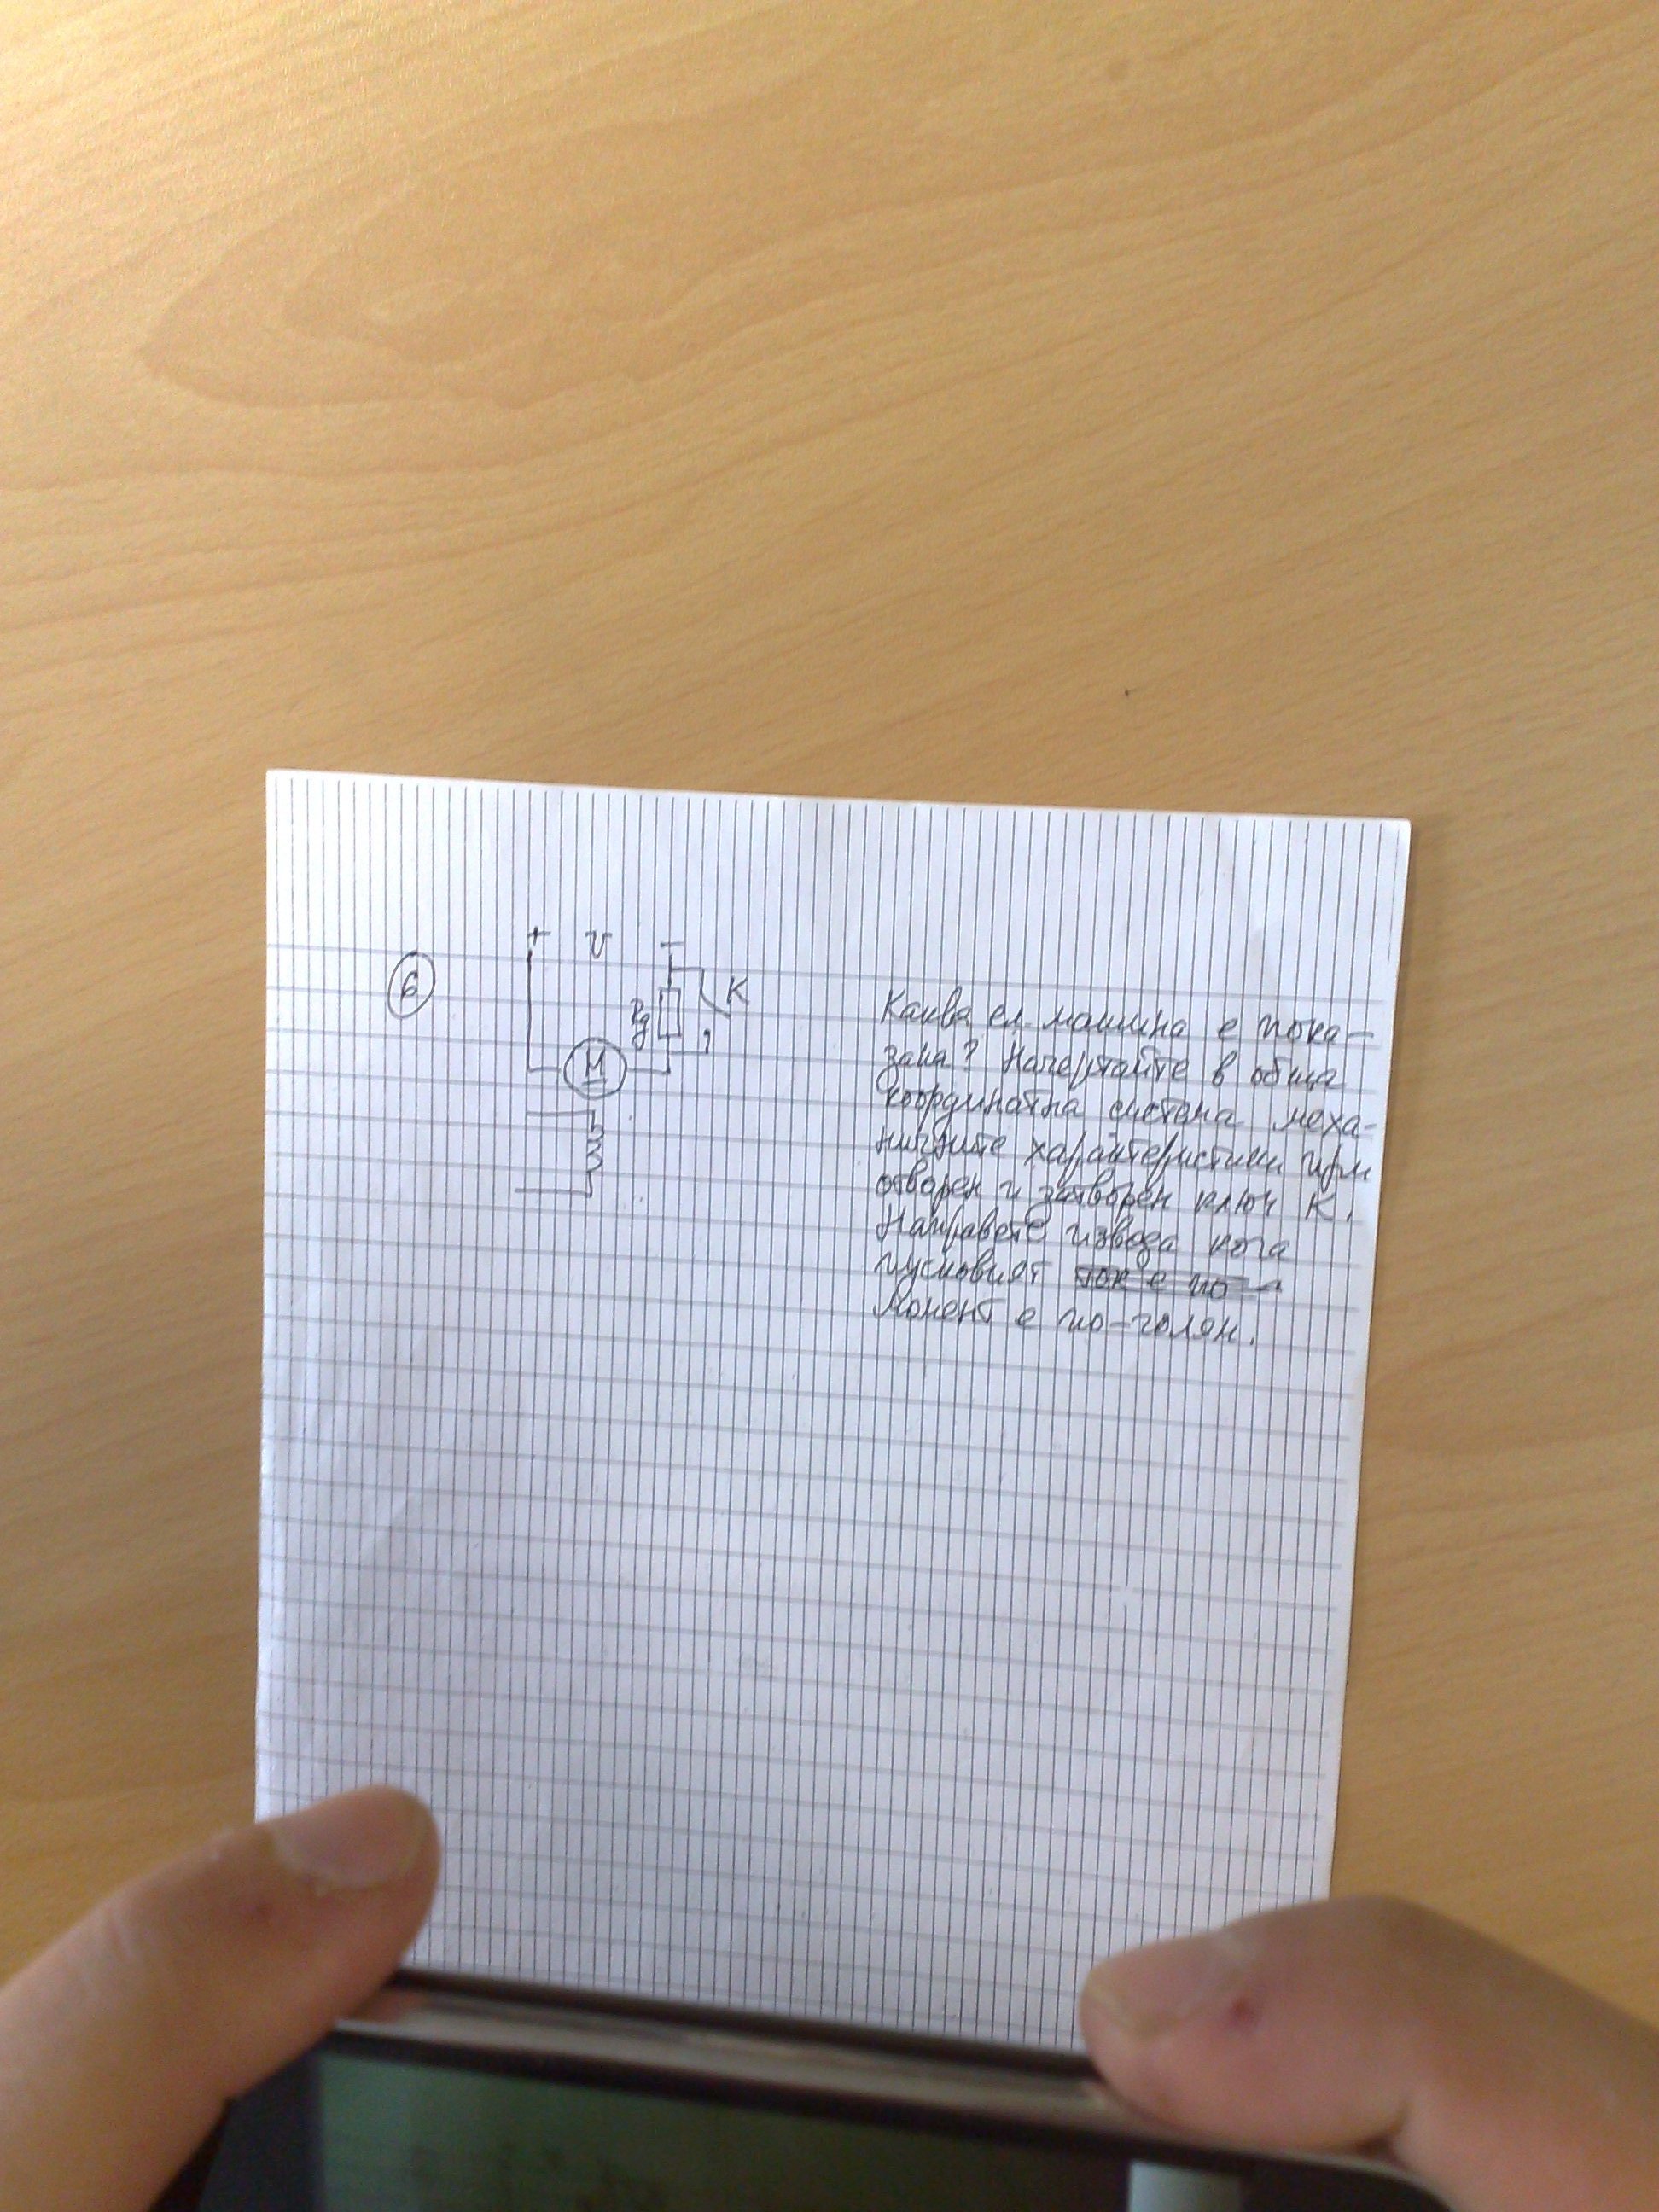 6
+ U −
K
Rg
M
Каква ел. машина е пока-
зана? Начертайте в обща
координатна система меха-
ничните характеристики при
отворен и затворен ключ К.
Направете извода кога
пусковият ток е по-
момент е по-голям.